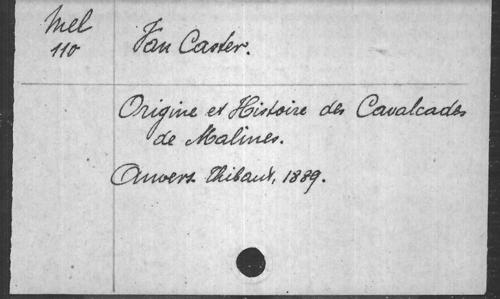 Mel
110
Van Caster.
Origine et Histoire des Cavalcades
de Malines.
Anvers. Thibaut, 1889.